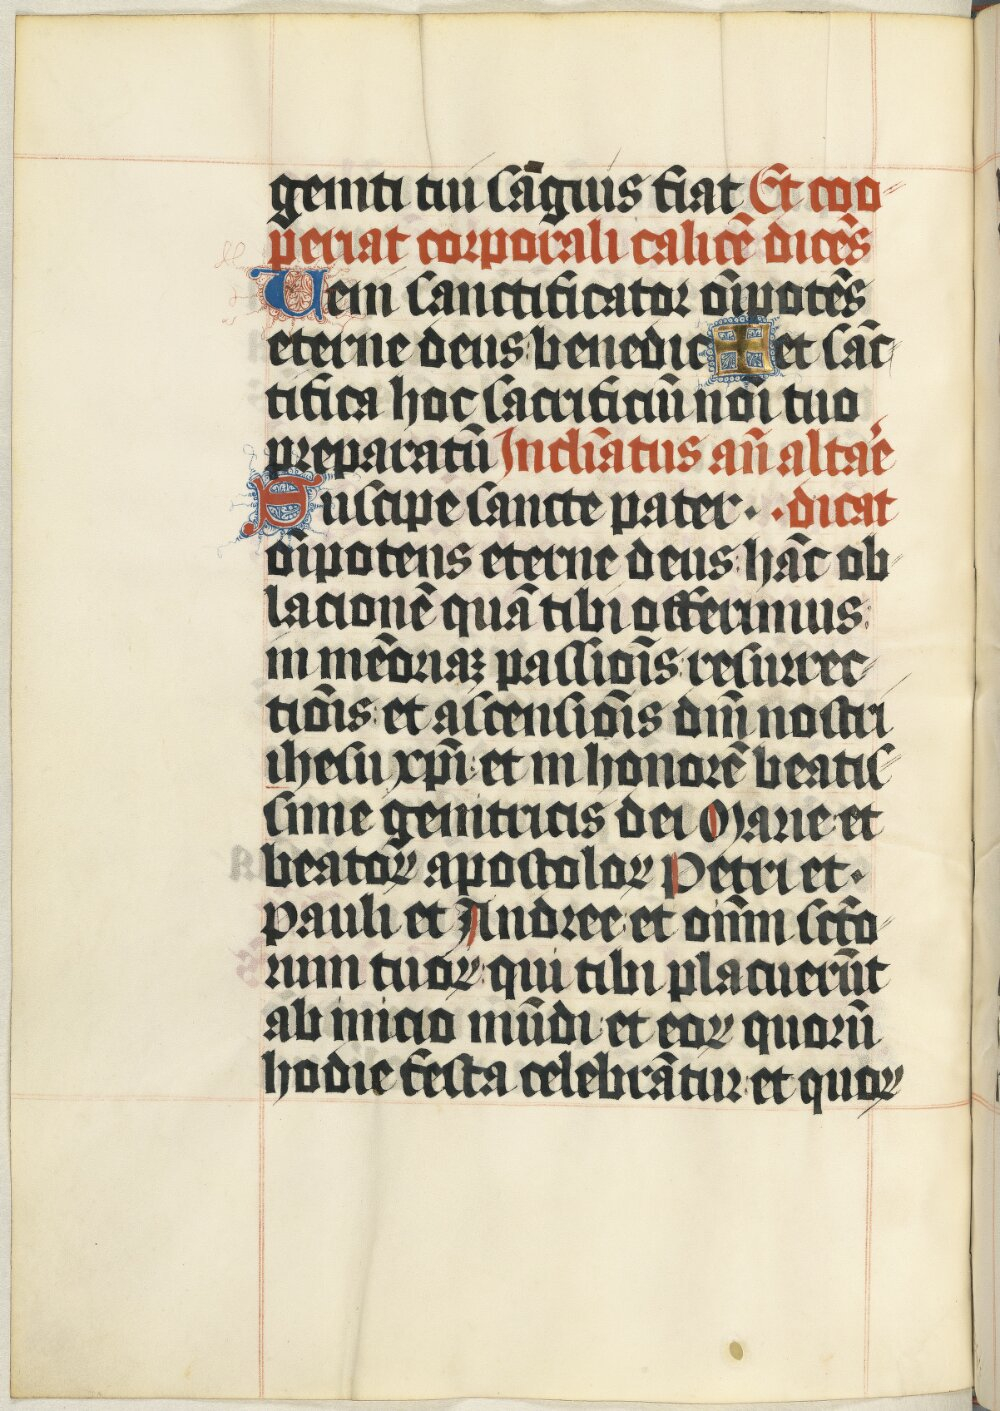 geniti tui sāguis fiat Et coo
periat corporali calicē dicēs
Veni sanctificator oīpotēs
eterne deus benedic ✠ et sāc
tifica hoc sacrificiū nōi tuo
preparatū Incliātus añ altaē
Suscipe sancte pater · · dicat
oīpotens eterne deus hāc ob
lacionē quā tibi offerimus
in mēoriaꝫ passiōis resurrec
tiōis et ascensiōis dn̄i nostri
ihesu xp̄i et in honorē beatis
sime genitricis dei Marie et
beatoꝝ apostoloꝝ Petri et ·
Pauli et Andree et oīm scto
rum tuoꝝ qui tibi placuerūt
ab inicio mūdi et eoꝝ quorū
hodie festa celebrātur et quoꝝ